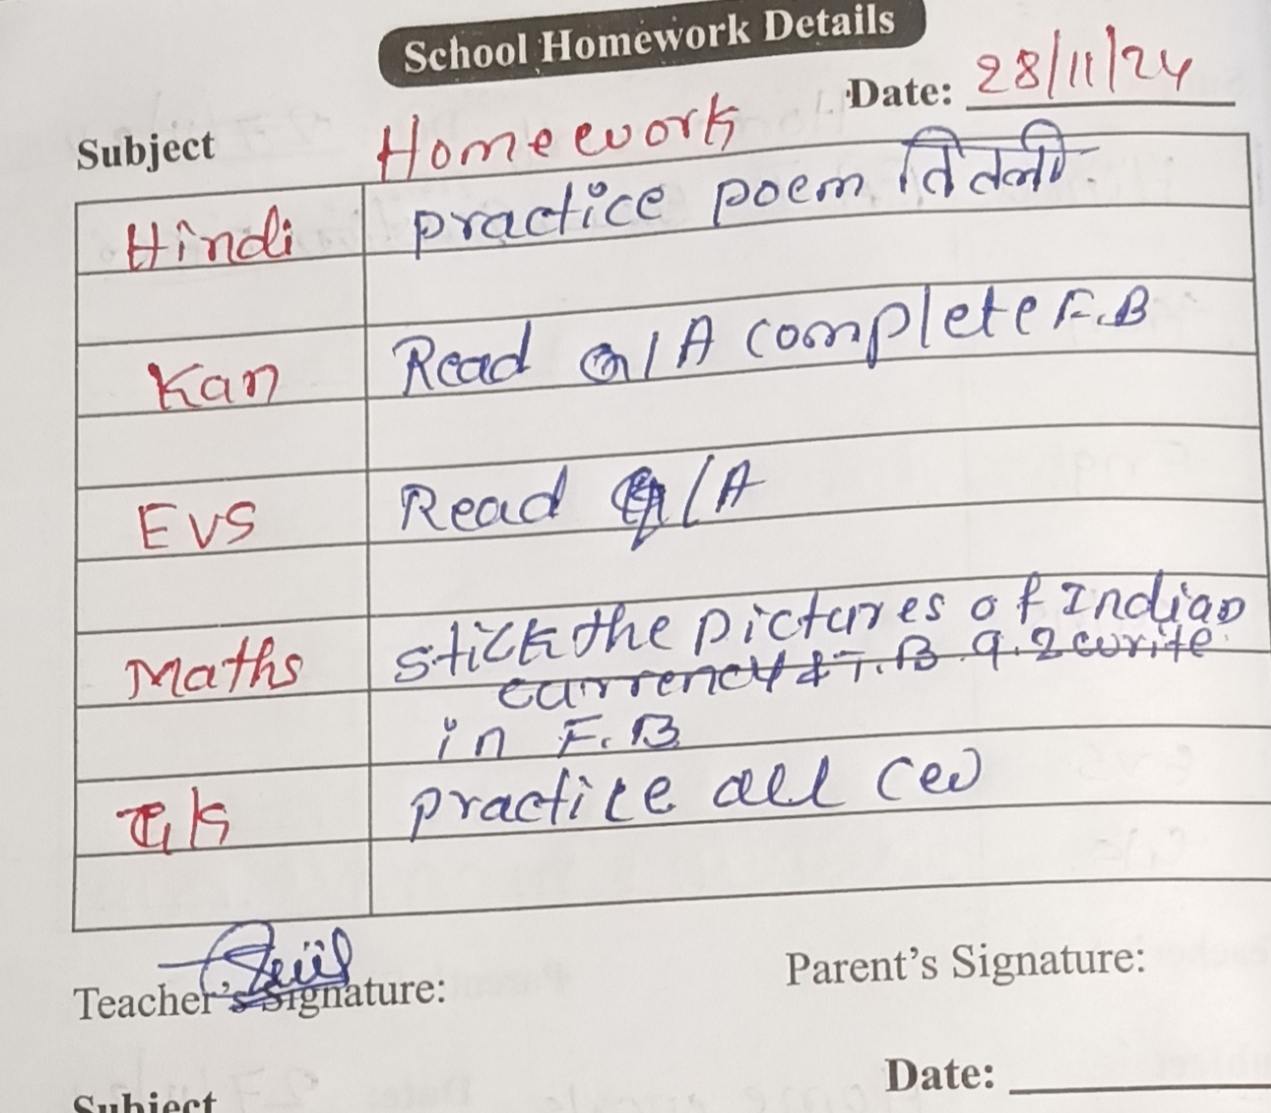 School Homework Details
Date: 28/11/24
Subject Homework
Hindi practice poem तितली
Kan Read Q/A complete F.B
EVS Read Q/A
Maths stick the pictures of Indian
currency & T.B 9.2 write
in F.B
G.K practice all CW
Teacher's Signature:
Parent's Signature:
Date:
Subject